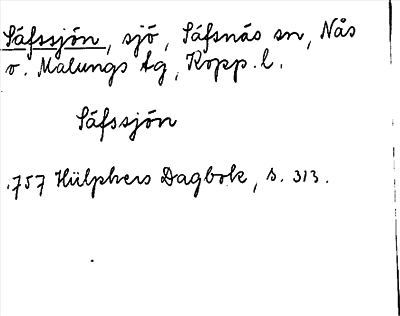 Säfssjön, sjö, Säfsnäs sn, Nås
o. Malungs tg, Kopp. l.
Säfssjön
.757 Hülphers Dagbok, s. 313.